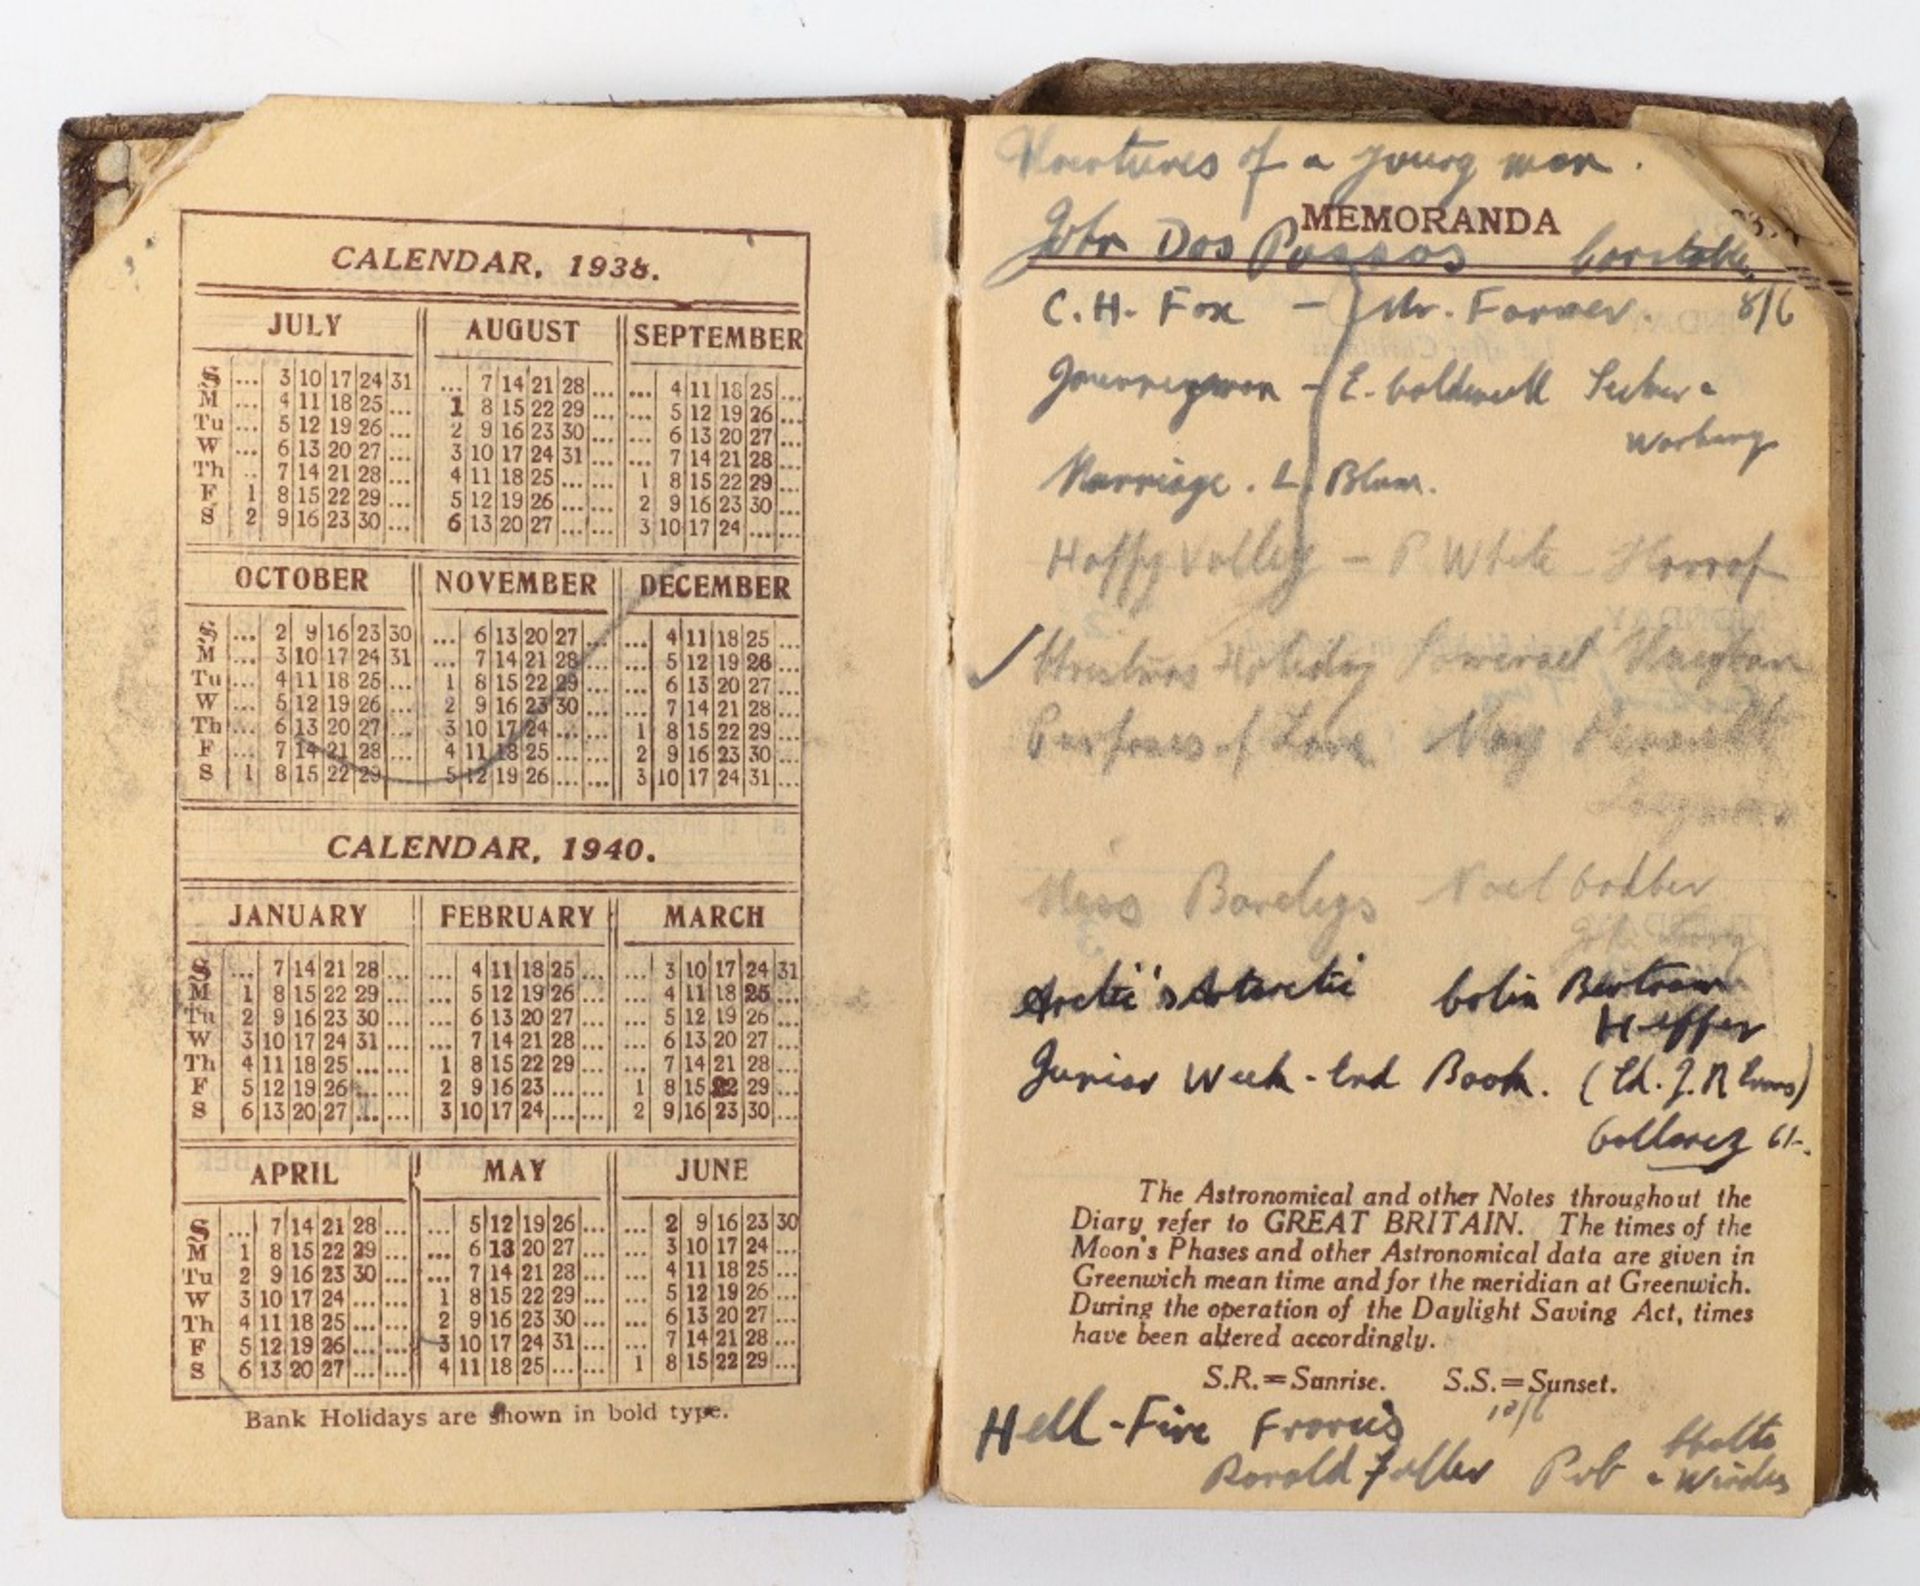 CALENDAR, 1938.
JULY AUGUST SEPTEMBER
S ... 3 10 17 24 31 ... 7 14 21 28 ... ... 4 11 18 25 ...
M ... 4 11 18 25 ... 1 8 15 22 29 ... ... 5 12 19 26 ...
Tu ... 5 12 19 26 ... 2 9 16 23 30 ... ... 6 13 20 27 ...
W ... 6 13 20 27 ... 3 10 17 24 31 ... ... 7 14 21 28 ...
Th .. 7 14 21 28 ... 4 11 18 25 ... ... 1 8 15 22 29 ...
F 1 8 15 22 29 ... 5 12 19 26 ... ... 2 9 16 23 30 ...
S 2 9 16 23 30 ... 6 13 20 27 ... ... 3 10 17 24 ... ...
OCTOBER NOVEMBER DECEMBER
S ... 2 9 16 23 30 ... 6 13 20 27 ... ... 4 11 18 25 ...
M ... 3 10 17 24 31 ... 7 14 21 28 ... ... 5 12 19 26 ...
Tu ... 4 11 18 25 ... 1 8 15 22 29 ... ... 6 13 20 27 ...
W ... 5 12 19 26 ... 2 9 16 23 30 ... ... 7 14 21 28 ...
Th ... 6 13 20 27 ... 3 10 17 24 ... ... 1 8 15 22 29 ...
F ... 7 14 21 28 ... 4 11 18 25 ... ... 2 9 16 23 30 ...
S 1 8 15 22 29 ... 5 12 19 26 ... ... 3 10 17 24 31 ...
CALENDAR, 1940.
JANUARY FEBRUARY MARCH
S ... 7 14 21 28 ... ... 4 11 18 25 ... ... 3 10 17 24 31
M 1 8 15 22 29 ... ... 5 12 19 26 ... ... 4 11 18 25 ...
Tu 2 9 16 23 30 ... ... 6 13 20 27 ... ... 5 12 19 26 ...
W 3 10 17 24 31 ... ... 7 14 21 28 ... ... 6 13 20 27 ...
Th 4 11 18 25 ... ... 1 8 15 22 29 ... ... 7 14 21 28 ...
F 5 12 19 26 ... ... 2 9 16 23 ... ... 1 8 15 22 29 ...
S 6 13 20 27 ... ... 3 10 17 24 ... ... 2 9 16 23 30 ...
APRIL MAY JUNE
S ... 7 14 21 28 ... ... 5 12 19 26 ... ... 2 9 16 23 30
M 1 8 15 22 29 ... ... 6 13 20 27 ... ... 3 10 17 24 ...
Tu 2 9 16 23 30 ... ... 7 14 21 28 ... ... 4 11 18 25 ...
W 3 10 17 24 ... ... 1 8 15 22 29 ... ... 5 12 19 26 ...
Th 4 11 18 25 ... ... 2 9 16 23 30 ... ... 6 13 20 27 ...
F 5 12 19 26 ... ... 3 10 17 24 31 ... ... 7 14 21 28 ...
S 6 13 20 27 ... ... 4 11 18 25 ... ... 1 8 15 22 29 ...
Bank Holidays are shown in bold type.
of a young man.
MEMORANDA
John Dos Passos Constable
C. H. Fox - Mr. Farmer. 8/6
Journeyman - E. Caldwell Secker &
Warburg
Marriage. L. Blum.
Happy Valley - P. White Harrap
✓ Christmas Holiday Somerset Maugham
Purposes of Love Mary Renault
Longmans
Miss Barclays Noel
Arctic & Antarctic Colin Bertram
Heffer
Junior Week-End Book. (Ed. J. R Evans)
Gollancz 6/-.
The Astronomical and other Notes throughout the
Diary refer to GREAT BRITAIN. The times of the
Moon's Phases and other Astronomical data are given in
Greenwich mean time and for the meridian at Greenwich.
During the operation of the Daylight Saving Act, times
have been altered accordingly.
S.R.=Sunrise. S.S.=Sunset.
12/6
Hell-Fire Francis
Ronald Fuller Pub Chatto
& Windus